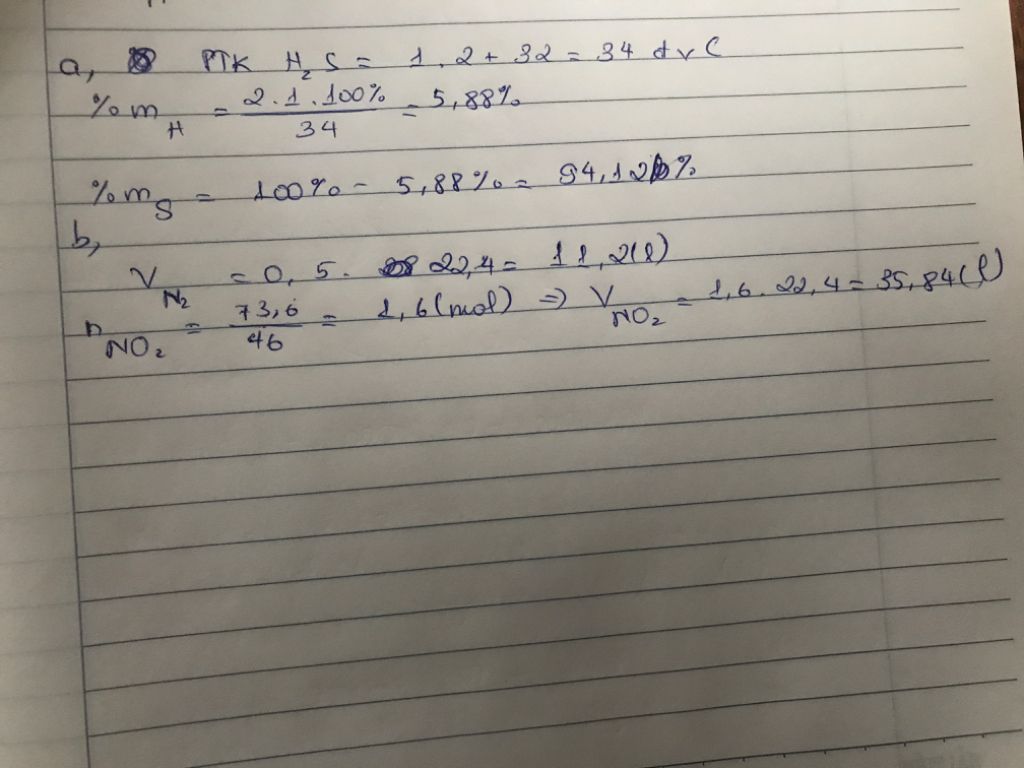 a, PTK H₂S = 1.2 + 32 = 34 đvC
%m_H = 2.1.100% / 34 = 5,88%
%m_S = 100% - 5,88% = 94,12%
b,
V_N₂ = 0,5. 22,4 = 11,2(l)
n_NO₂ = 73,6 / 46 = 1,6(mol) => V_NO₂ = 1,6.22,4 = 35,84(l)